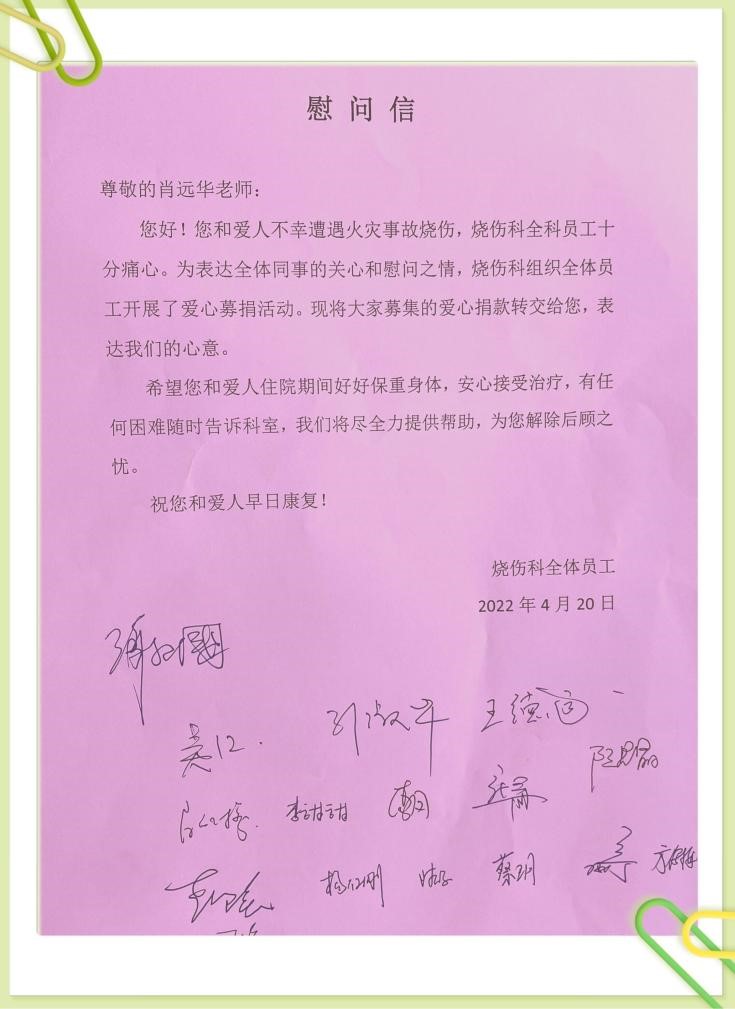 慰问信
尊敬的肖远华老师：
您好！您和爱人不幸遭遇火灾事故烧伤，烧伤科全科员工十
分痛心。为表达全体同事的关心和慰问之情，烧伤科组织全体员
工开展了爱心募捐活动。现将大家募集的爱心捐款转交给您，表
达我们的心意。
希望您和爱人住院期间好好保重身体，安心接受治疗，有任
何困难随时告诉科室，我们将尽全力提供帮助，为您解除后顾之
忧。
祝您和爱人早日康复！
烧伤科全体员工
2022 年 4 月 20 日
李甜甜
蔡玥